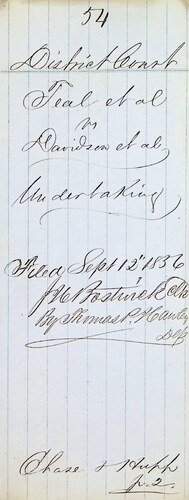 54
District Court
Teal et al
vs
Davidson et al
Undertaking
Filed Sept 12th 1856
J H Bostwick Clk
By Thomas P. Hawley
Dep
Chase & Hupp
p.2